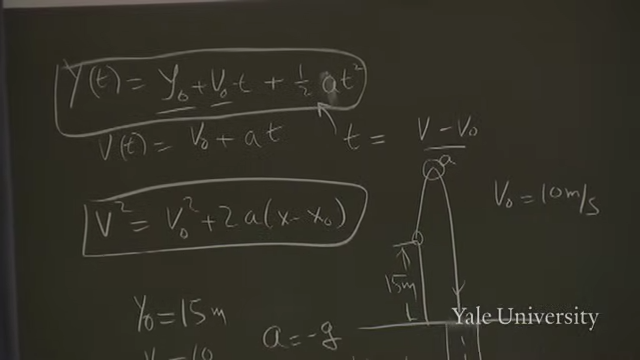 Y(t) = y₀ + v₀ t + ½ a t²
V(t) = V₀ + a t
t = V - V₀ / a
V² = V₀² + 2 a (x - x₀)
V₀ = 10 m/s
15m
Y₀ = 15m
a = -g
Yale University